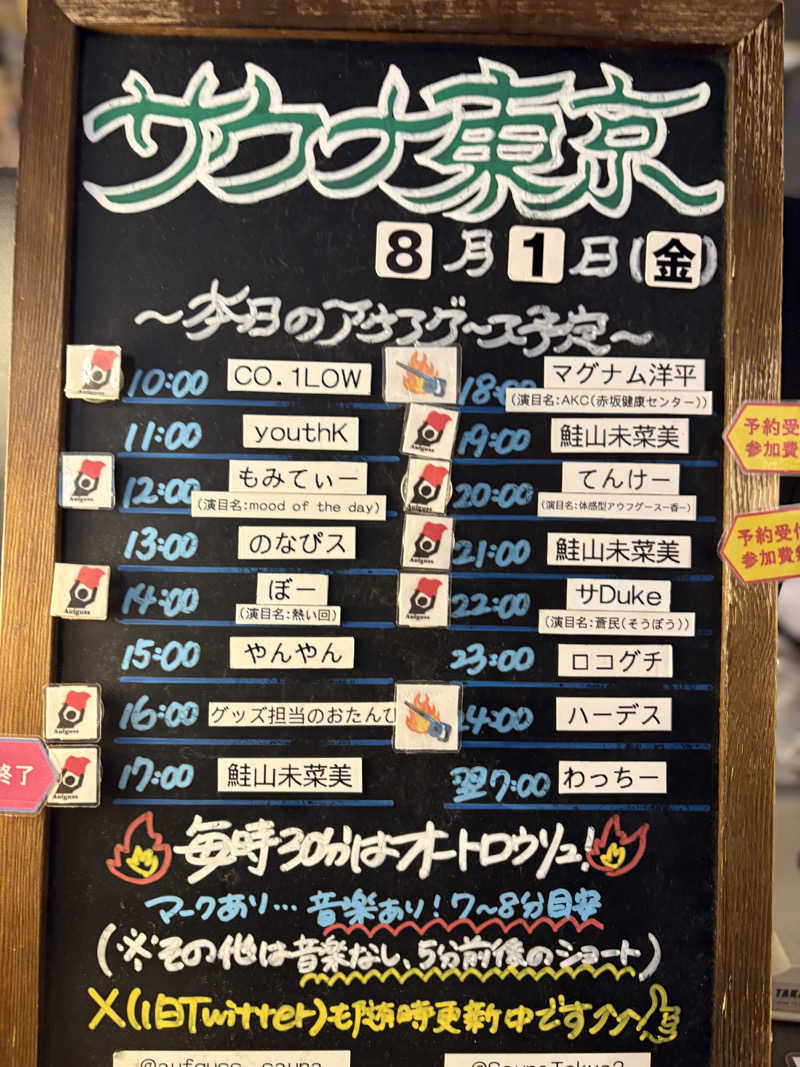 サウナ東京
8月1日(金)
～本日のアウフグース予定～
Aufguss
10:00 CO.1LOW
11:00 youthK
Aufguss
12:00 もみてぃー
(演目名:mood of the day)
13:00 のなぴス
Aufguss
14:00 ぼー
(演目名:熱い回)
15:00 やんやん
Aufguss
16:00 グッズ担当のおたんぴ
終了
Aufguss
17:00 鮭山未菜美
18:00 マグナム洋平
(演目名:AKC(赤坂健康センター))
Aufguss
19:00 鮭山未菜美
予約受
参加費
Aufguss
20:00 てんけー
(演目名:体感型アウフグースー香ー)
Aufguss
21:00 鮭山未菜美
予約受付
参加費
Aufguss
22:00 サDuke
(演目名:蒼民(そうぼう))
23:00 ロコグチ
24:00 ハーデス
翌7:00 わっちー
毎時30分はオートロウリュ!
マークあり… 音楽あり! 7～8分目安
(※その他は音楽なし、5分前後のショート)
X(旧Twitter)も随時更新中です↗↗
@aufguss_sauna
@SaunaTokyo2